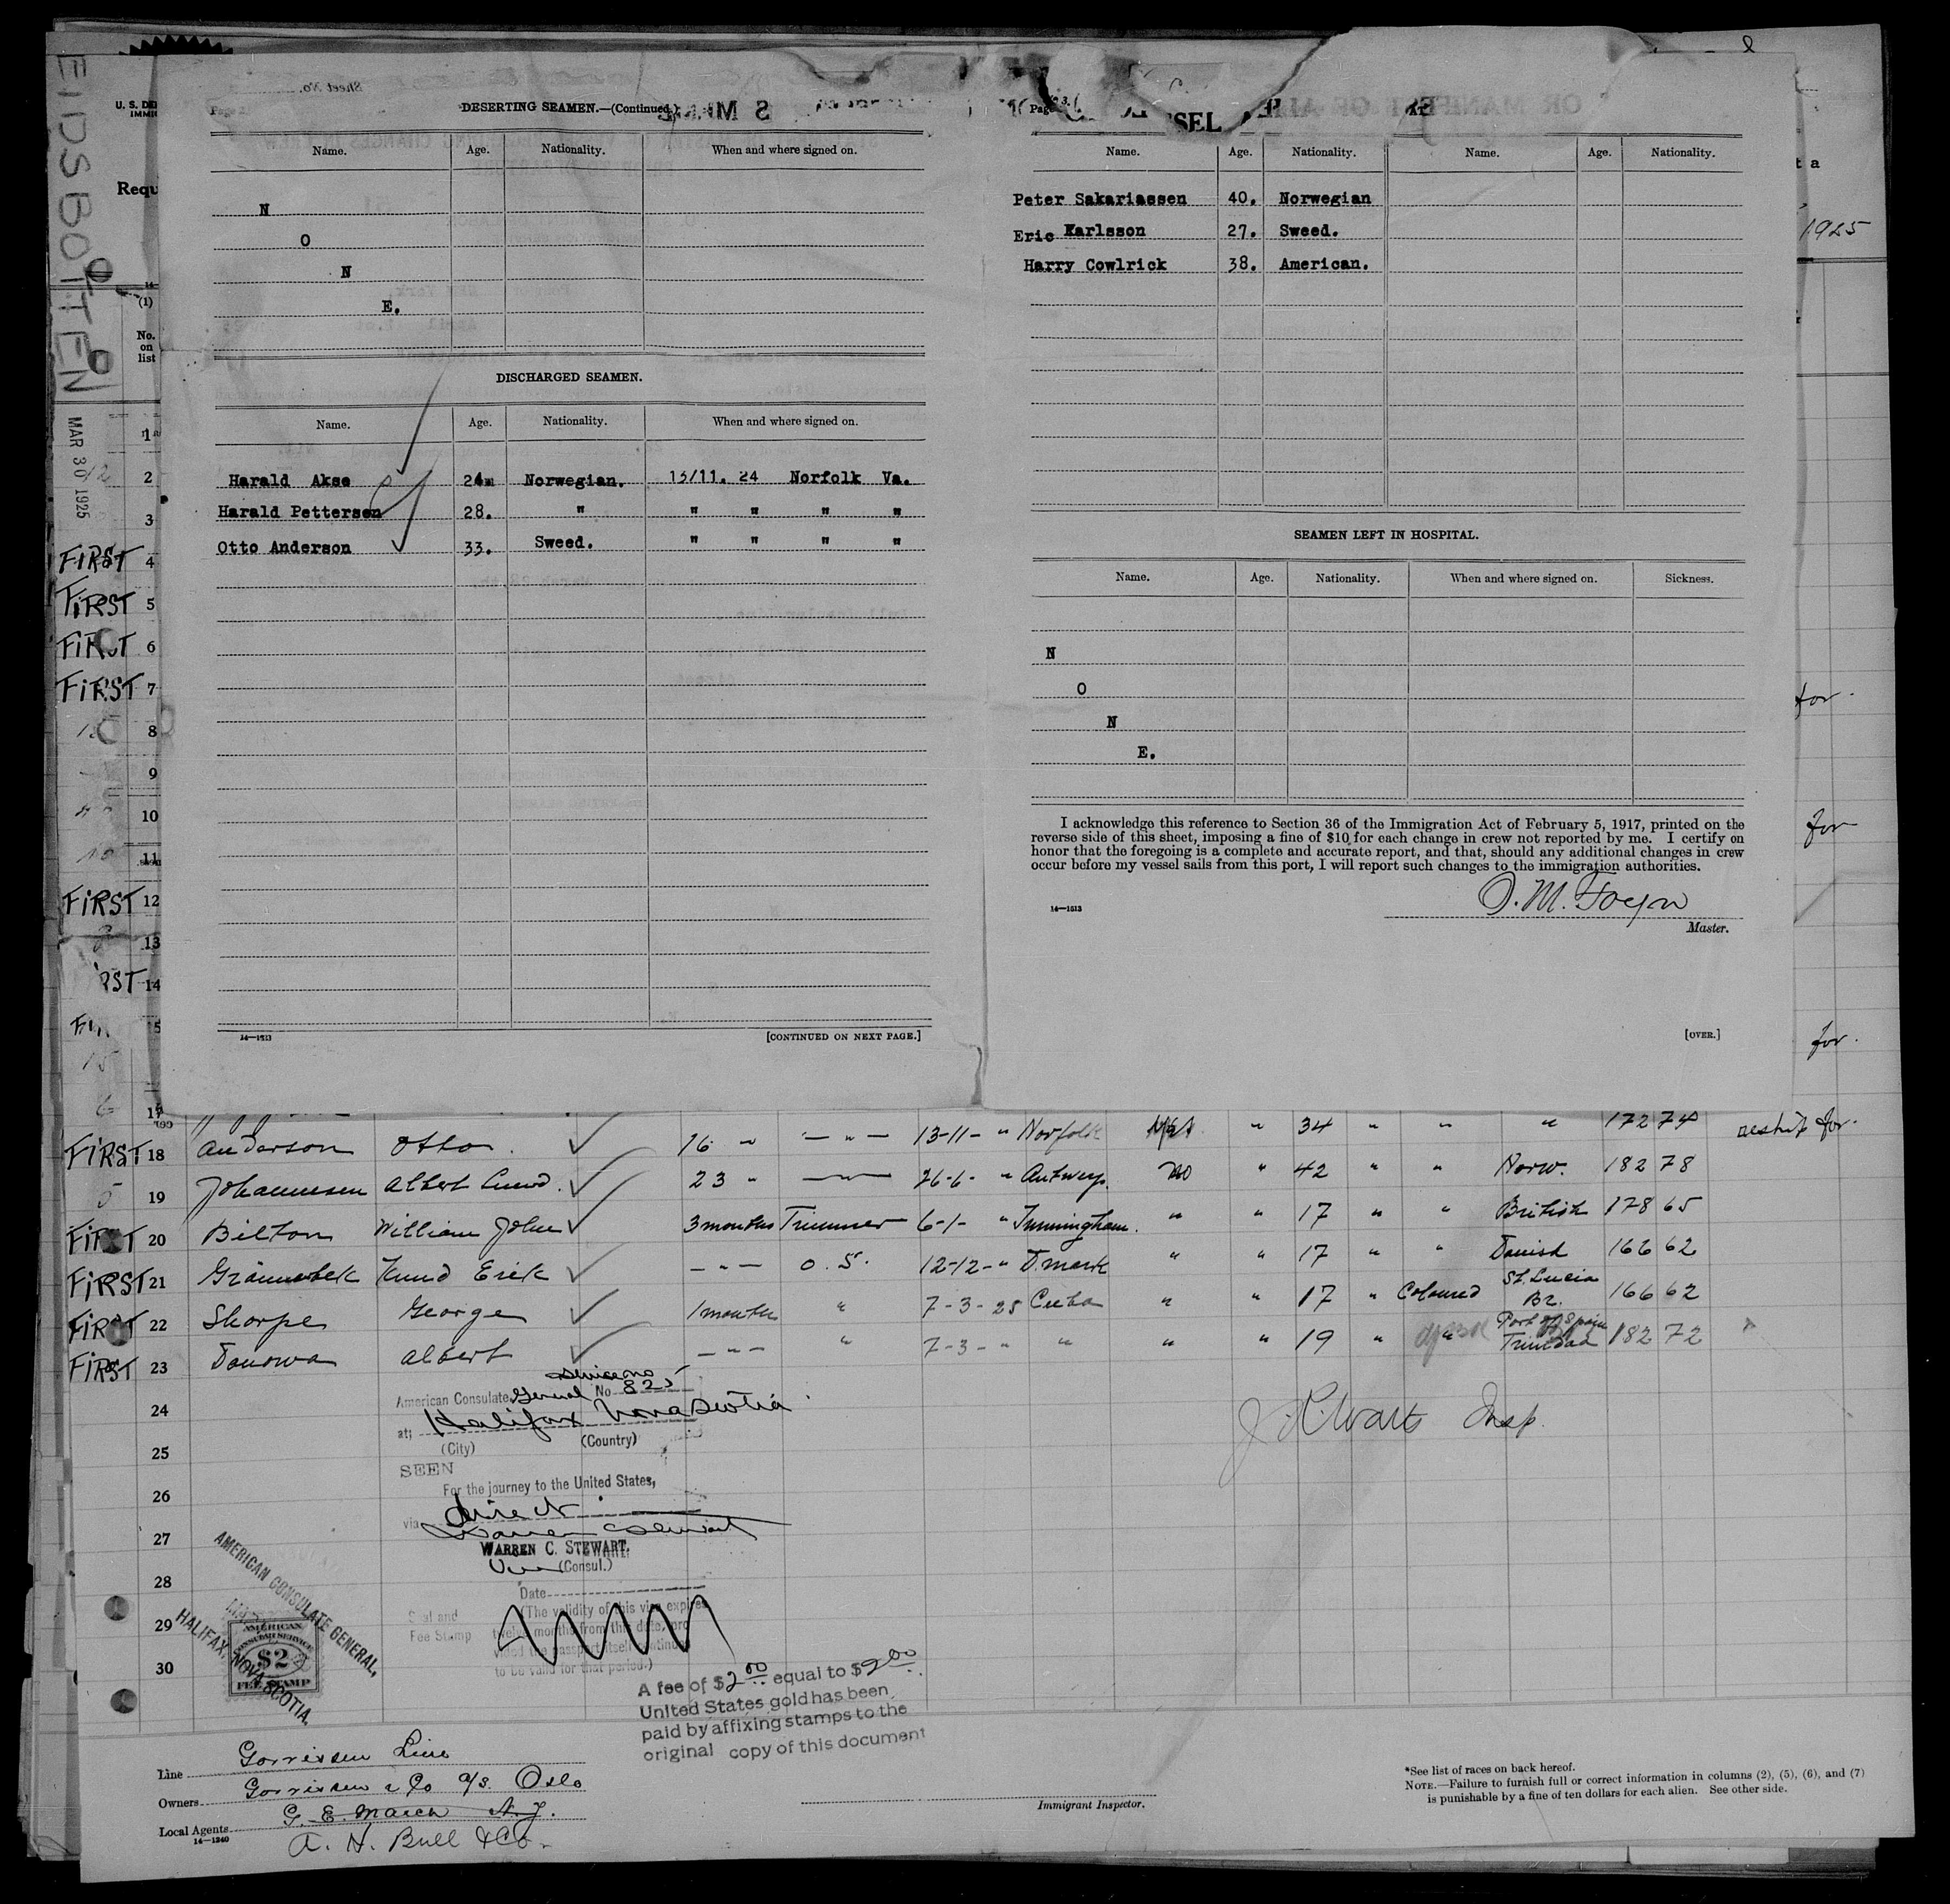 EIDSBOTTEN
MAR 30 1925
U. S. DE
IMMI
Requ
(1)
No.
on
list
1925
Sheet No.
DESERTING SEAMEN.—(Continued.)
Name. Age. Nationality. When and where signed on.
N
O
N
E.
DISCHARGED SEAMEN.
Name. Age. Nationality. When and where signed on.
Harald Akse 24 Norwegian. 13/11. 24 Norfolk Va.
Harald Pettersen 28. " " " " "
Otto Anderson 33. Sweed. " " " "
14—1513
[CONTINUED ON NEXT PAGE.]
Page 3.
Name. Age. Nationality. Name. Age. Nationality.
Peter Sakariassen 40. Norwegian
Eric Karlsson 27. Sweed.
Harry Cowlrick 38. American.
SEAMEN LEFT IN HOSPITAL.
Name. Age. Nationality. When and where signed on. Sickness.
N
O
N
E.
I acknowledge this reference to Section 36 of the Immigration Act of February 5, 1917, printed on the
reverse side of this sheet, imposing a fine of $10 for each change in crew not reported by me. I certify on
honor that the foregoing is a complete and accurate report, and that, should any additional changes in crew
occur before my vessel sails from this port, I will report such changes to the immigration authorities.
O. M. Foyn
14—1513
Master.
[OVER.]
1
2
3
FIRST 4
FIRST 5
FIRST 6
FIRST 7
8
9
10
11
FIRST 12
13
RST 14
15
17 172 74
FIRST 18 Anderson Otto. 16 " — " — 13-11- " Norfolk " 34 " " " reship for.
19 Johannesen Albert Lund. 23 " 26-6- " Antwerp. no " 42 " " Norw. 182 78
FIRST 20 Bilton William John 3 months Trimmer 6-1- " Immingham. " " 17 " " British 178 65
FIRST 21 Grännebek Knud Erik — " — O. S. 12-12- " D.mark " " 17 " " Danish 166 62
FIRST 22 Sharpe George 1 month " 7-3-25 Cuba " " 17 " Coloured St. Lucia Br. 166 62
FIRST 23 Donowa Albert — " — " 7-3- " " " " 19 " " Port of Spain Trinidad 182 72
24
25
26
27
28
29
30
for.
for
for.
Service no
American Consulate General No 825
at; Halifax Nova Scotia
(City) (Country)
SEEN
For the journey to the United States,
via direct
Warren C Stewart
WARREN C. STEWART.
Vice (Consul.)
Date
Seal and
Fee Stamp
(The validity of this visa expires
twelve months from this date, pro
vided the passport itself continues
to be valid for that period.)
Insp.
AMERICAN CONSULATE GENERAL,
HALIFAX, NOVA SCOTIA.
AMERICAN
CONSULAR SERVICE
$2
FEE STAMP
A fee of $2.00 equal to $2.00
United States gold has been
paid by affixing stamps to the
original copy of this document
Line Gorrissen Line
Owners Gorrissen & Co a/s. Oslo
Local Agents G. E. March N.Y.
14—1240
A. H. Bull & Co.
Immigrant Inspector.
*See list of races on back hereof.
NOTE.—Failure to furnish full or correct information in columns (2), (5), (6), and (7)
is punishable by a fine of ten dollars for each alien. See other side.